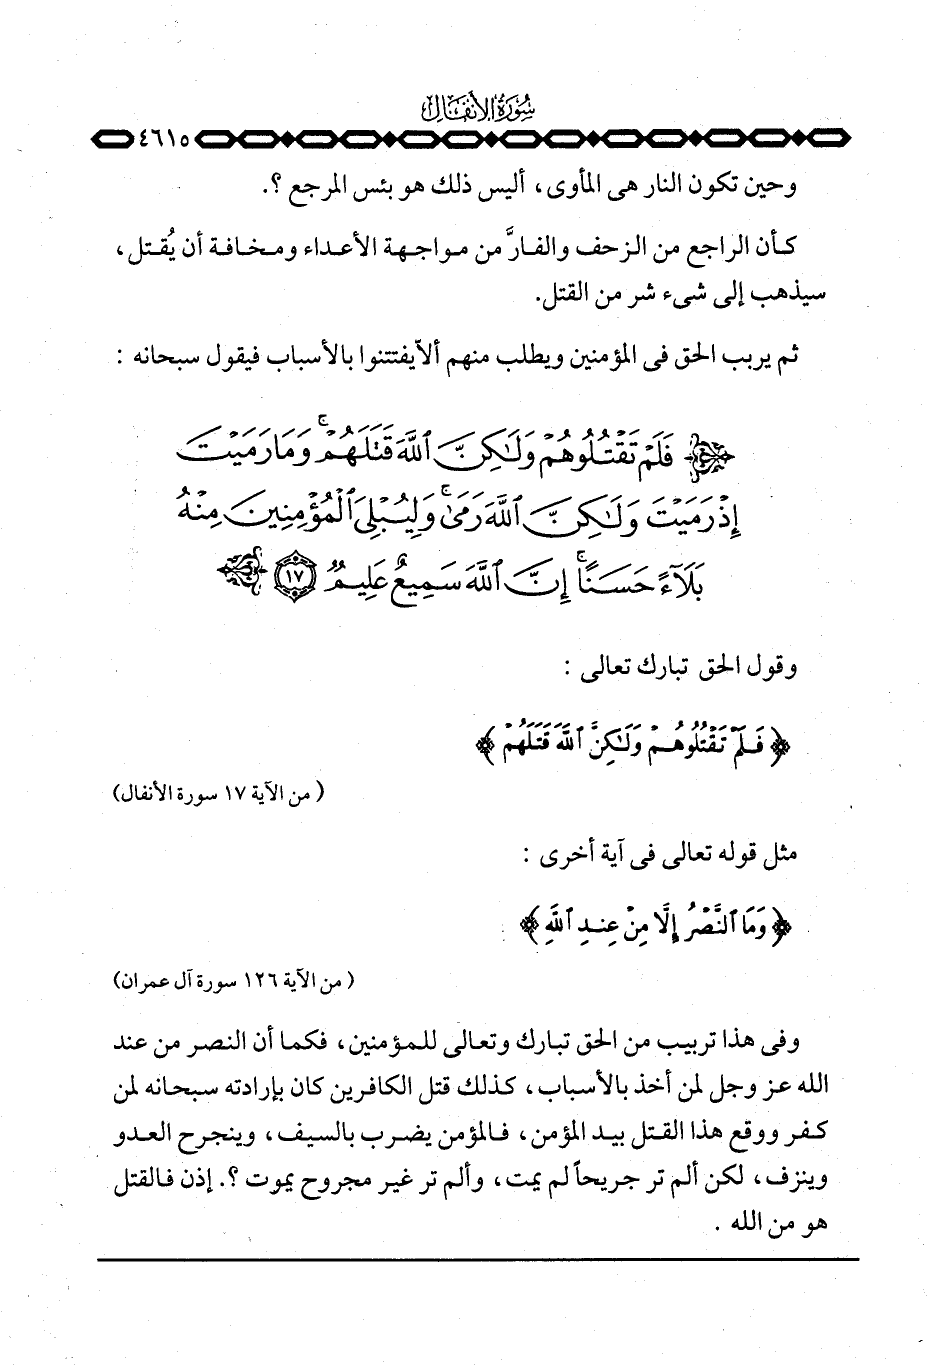 سُورَةُ الأَنفَالِ
٤٦١٥
وحين تكون النار هى المأوى، أليس ذلك هو بئس المرجع ؟.
كأن الراجع من الزحف والفارَّ من مواجهة الأعداء ومخافة أن يُقتل،
سيذهب إلى شىء شر من القتل.
ثم يربب الحق فى المؤمنين ويطلب منهم ألاّ يفتتنوا بالأسباب فيقول سبحانه :
فَلَمْ تَقْتُلُوهُمْ وَلَٰكِنَّ ٱللَّهَ قَتَلَهُمْ ۚ وَمَا رَمَيْتَ
إِذْ رَمَيْتَ وَلَٰكِنَّ ٱللَّهَ رَمَىٰ ۚ وَلِيُبْلِىَ ٱلْمُؤْمِنِينَ مِنْهُ
بَلَآءً حَسَنًا ۚ إِنَّ ٱللَّهَ سَمِيعٌ عَلِيمٌ ١٧
وقول الحق تبارك تعالى :
﴿ فَلَمْ تَقْتُلُوهُمْ وَلَٰكِنَّ ٱللَّهَ قَتَلَهُمْ ﴾
( من الآية ١٧ سورة الأنفال)
مثل قوله تعالى فى آية أخرى :
﴿ وَمَا ٱلنَّصْرُ إِلَّا مِنْ عِندِ ٱللَّهِ ﴾
( من الآية ١٢٦ سورة آل عمران)
وفى هذا تربيب من الحق تبارك وتعالى للمؤمنين، فكما أن النصر من عند
الله عز وجل لمن أخذ بالأسباب، كذلك قتل الكافرين كان بإرادته سبحانه لمن
كفر ووقع هذا القتل بيد المؤمن، فالمؤمن يضرب بالسيف، وينجرح العدو
وينزف، لكن ألم تر جريحاً لم يمت، وألم تر غير مجروح يموت ؟. إذن فالقتل
هو من الله .